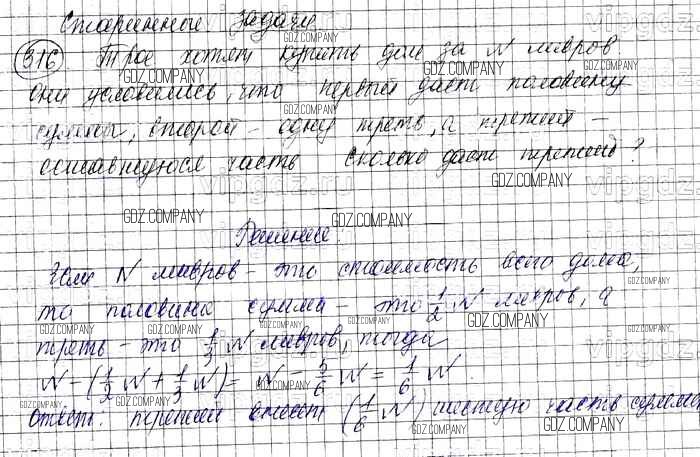 Старинные задачи
316 Трое хотят купить дом за N ливров
они условились, что первый даст половину
суммы, второй – одну треть, а третий –
оставшуюся часть Сколько даст третий?
Решение:
Если N ливров – это стоимость всего дома,
то половина суммы – это 1/2 N ливров, а
треть – это 1/3 N ливров, тогда
N – (1/2 N + 1/3 N) = N – 5/6 N = 1/6 N.
Ответ: третий внесет (1/6 N) шестую часть суммы
GDZ.COMPANY
vipgdz.ru